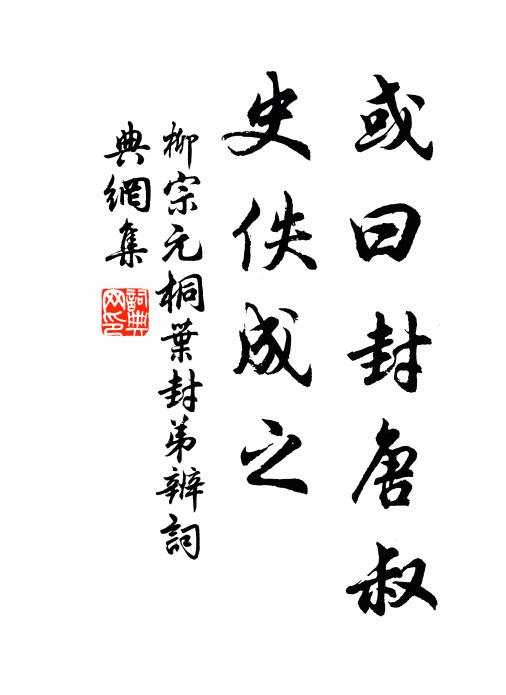 或曰封唐叔
史佚成之
柳宗元桐葉封弟辨詞
典網集
詞典網印